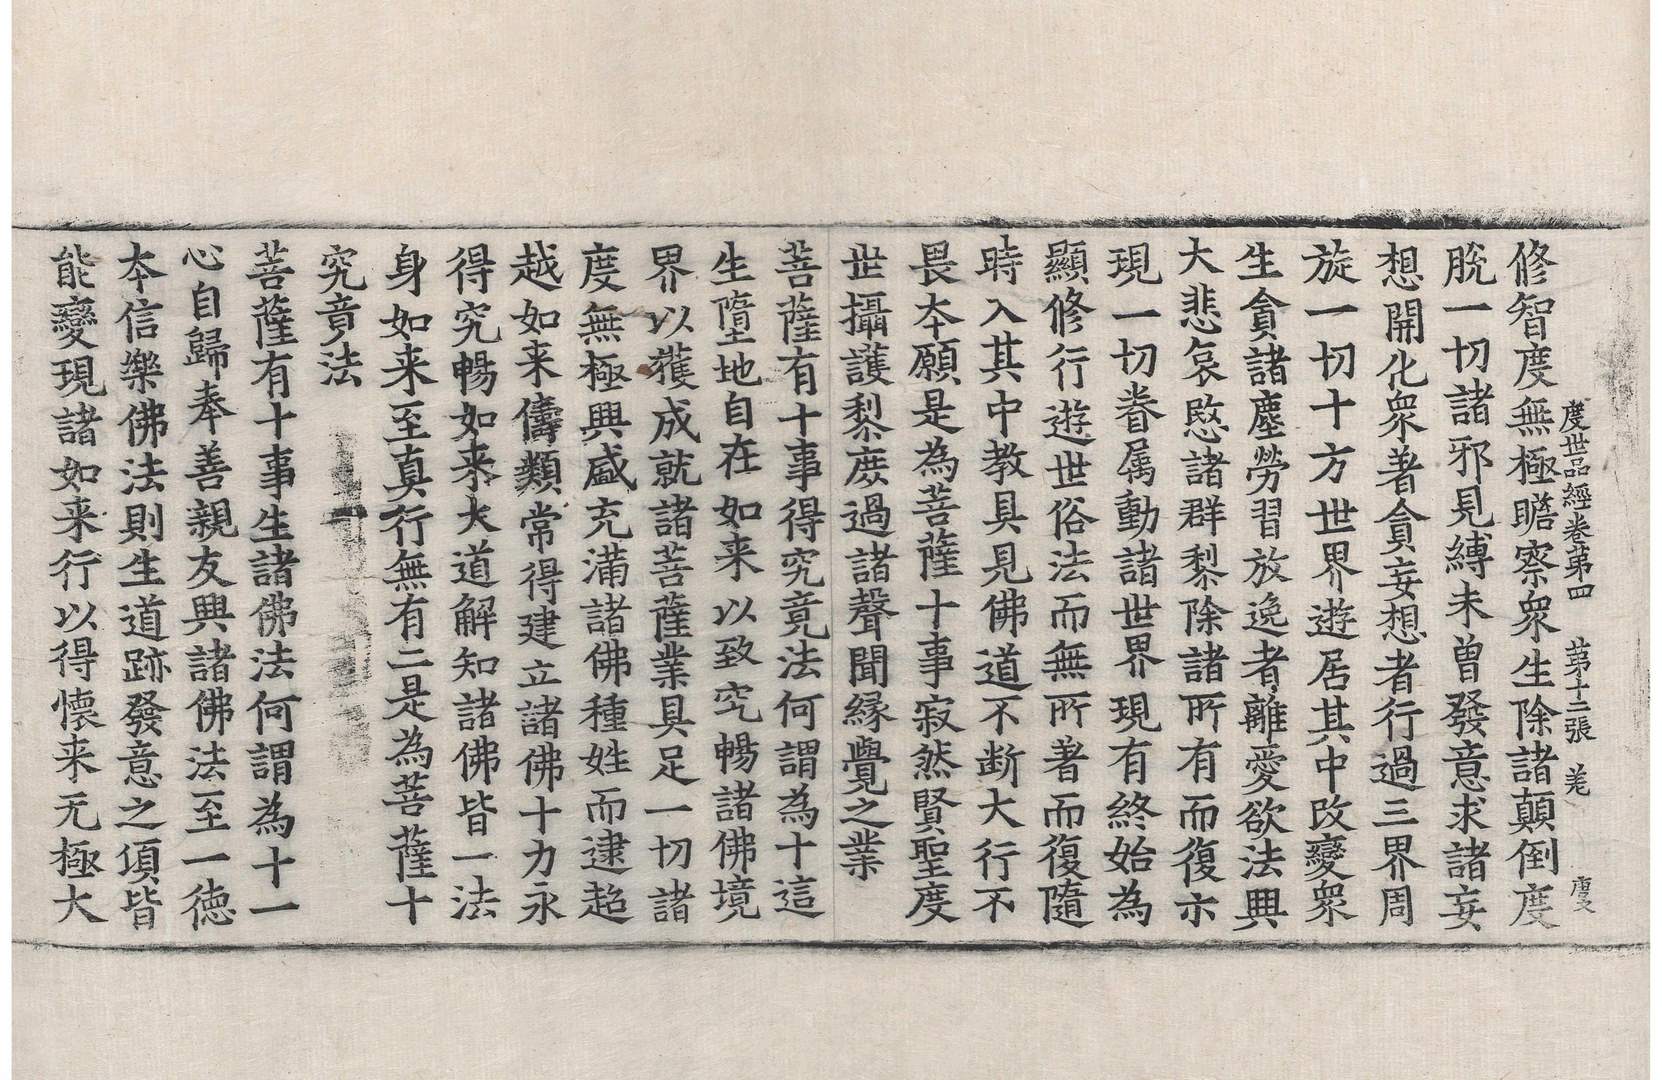 度世品經卷第四 第十二張 羌
修智度無極瞻察衆生除諸顛倒度
脫一切諸邪見縛未曾發意求諸妄
想開化衆著貪妄想者行過三界周
旋一切十方世界遊居其中改變衆
生貪諸塵勞習放逸者離愛欲法興
大悲哀愍諸群黎除諸所有而復示
現一切眷属動諸世界現有終始為
顯修行遊世俗法而無所著而復隨
時入其中教具見佛道不断大行不
畏本願是為菩薩十事寂然賢聖度
世攝護黎庶過諸聲聞緣覺之業
菩薩有十事得究竟法何謂為十這
生墮地自在如来以致究暢諸佛境
界以獲成就諸菩薩業具足一切諸
度無極興盛充滿諸佛種姓而逮超
越如来儔類常得建立諸佛十力永
得究暢如来大道解知諸佛皆一法
身如来至真行無有二是為菩薩十
究竟法
菩薩有十事生諸佛法何謂為十一
心自歸奉善親友興諸佛法至一德
本信樂佛法則生道跡發意之頃皆
能變現諸如来行以得懷来无極大